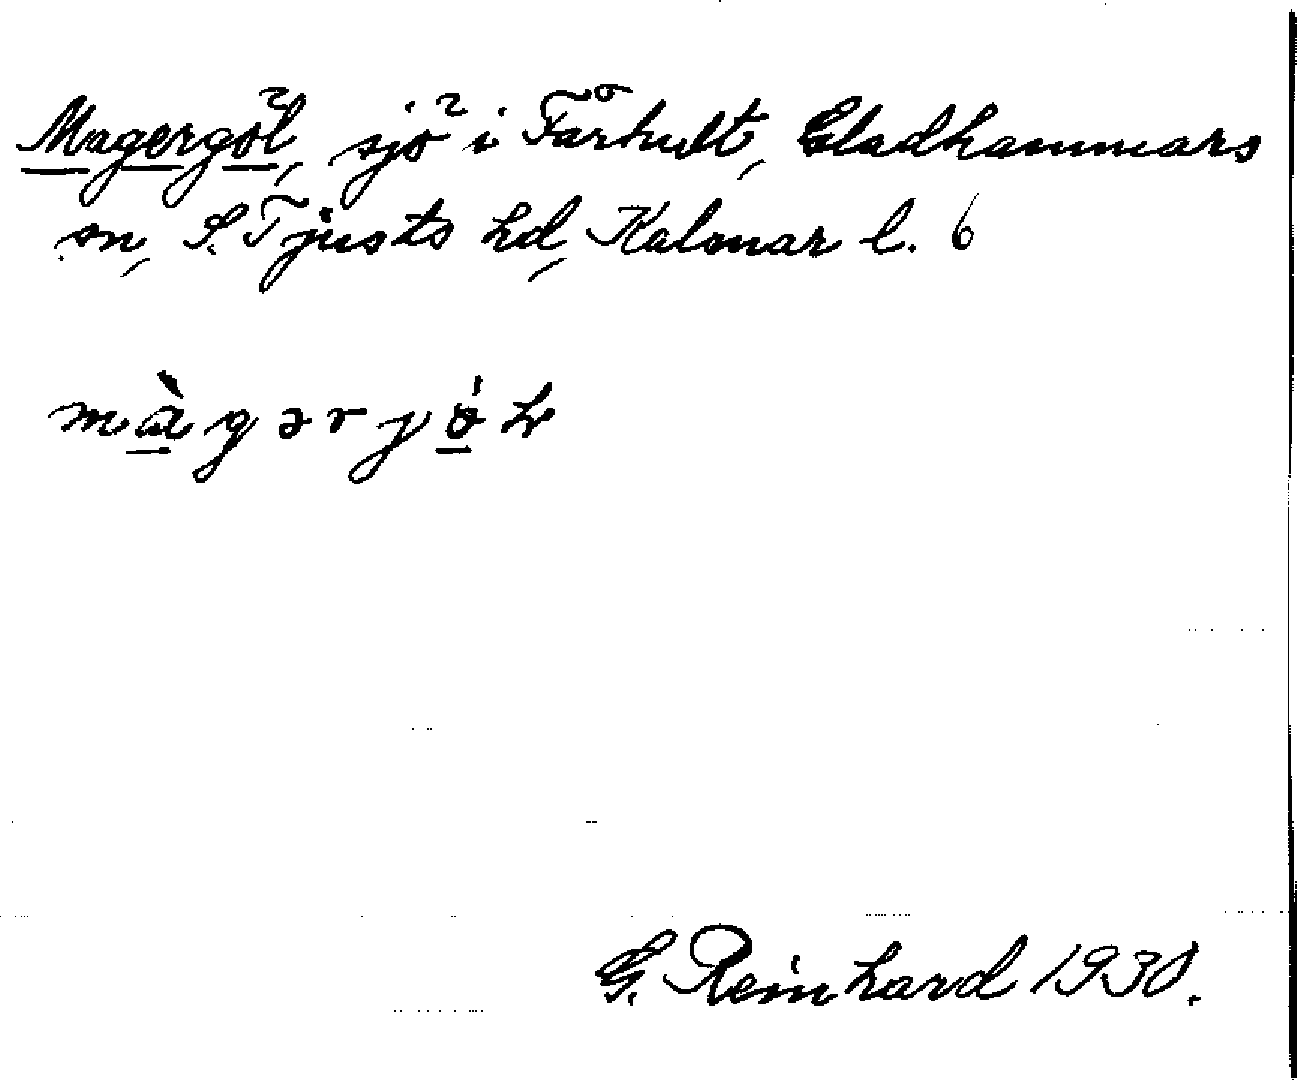 Magergöl, sjö i Fårhult, Gladhammars
sn, S. Tjusts hd, Kalmar l. 6
màgərjǿɫ
G. Reinhard 1930.